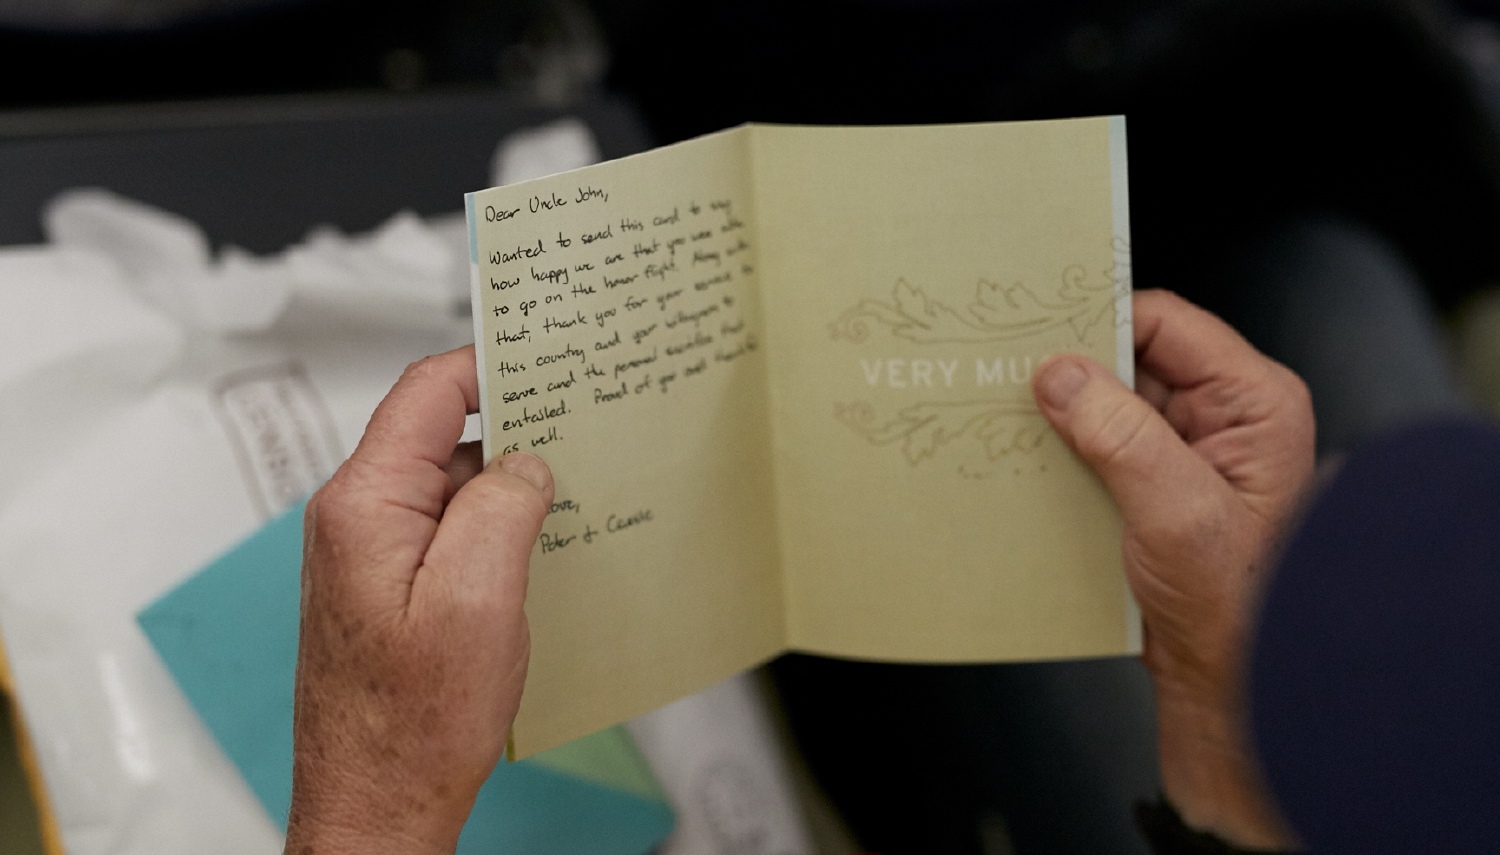 Dear Uncle John,
Wanted to send this card to say
how happy we are that you were able
to go on the honor flight. Along with
that, thank you for your service to
this country and your willingness to
serve and the personal sacrifice that
entailed. Proud of you and thankful
as well.
Love,
Peter &
VERY MUC